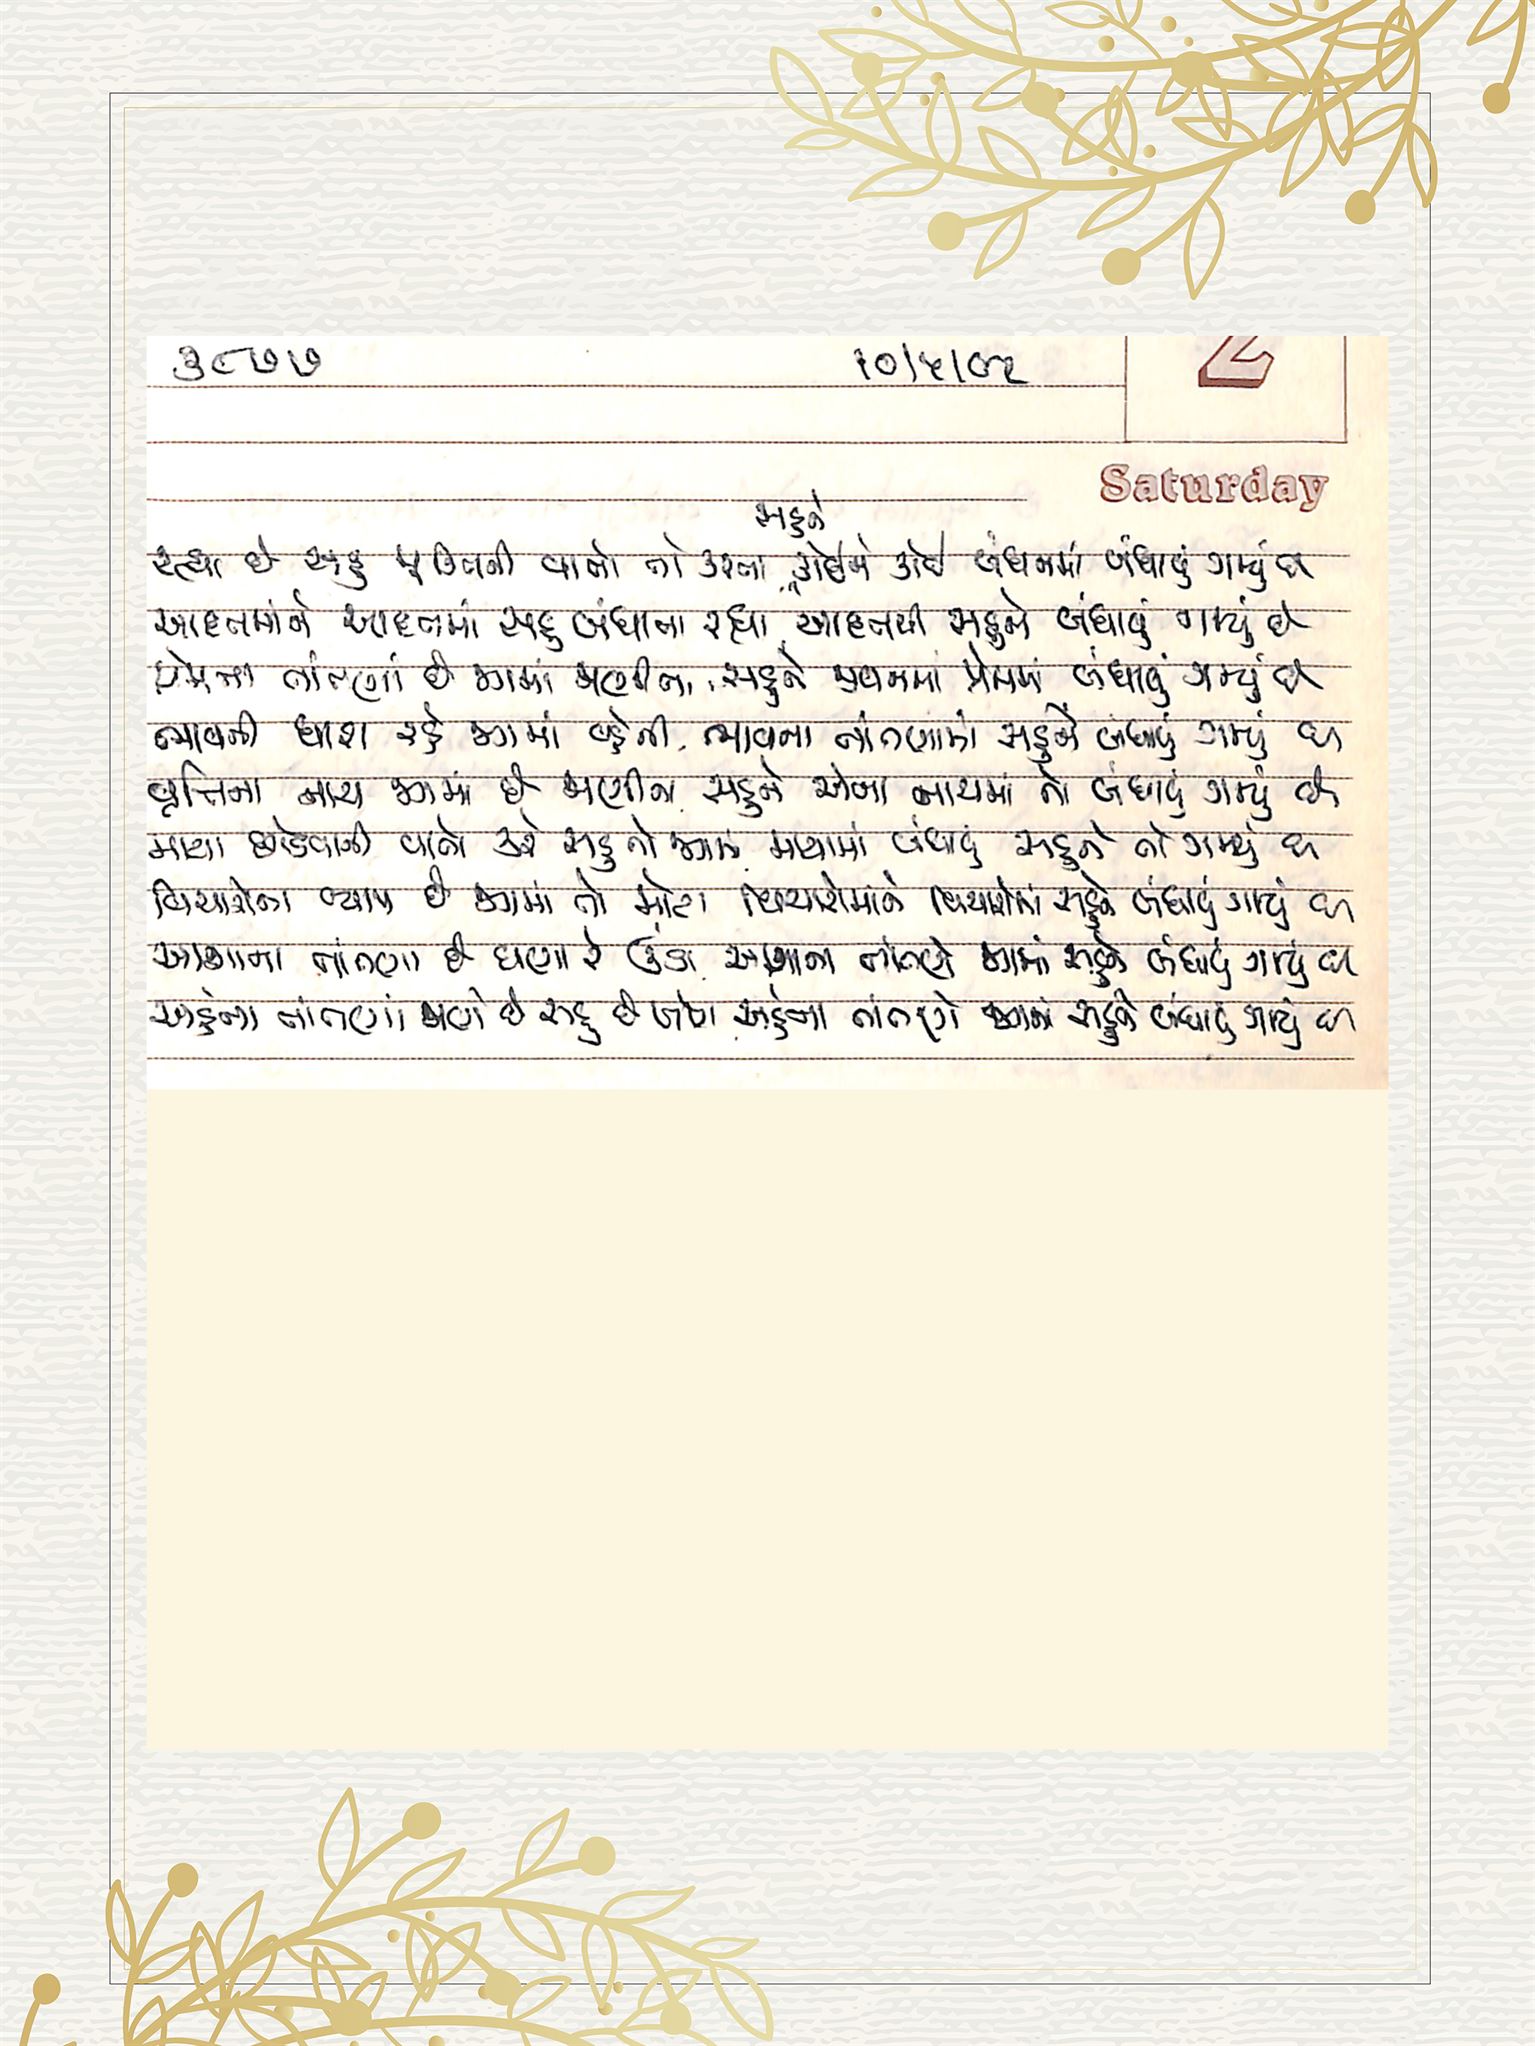 ૩૮૭૭ ૧૦/૫/૦૨
2
Saturday
સહુને
રહ્યા છે સહુ મુક્તિની વાતો તો કરતા, કોઈને કોઈ બંધનમાં બંધાવું ગમ્યું છે
આદતમાંને આદતમાં સહુ બંધાતા રહ્યા, આદતથી સહુને બંધાવું ગમ્યું છે
પ્રેમના તાંતણાં છે જગમાં અણદીઠા, સહુને જીવનમાં પ્રેમમાં બંધાવું ગમ્યું છે
ભાવની ધારા રહે જગમાં વહેતી, ભાવના તાંતણામાં સહુને બંધાવું ગમ્યું છે
વૃત્તિના નાચ જગમાં છે સહુને એના નાચમાં તો બંધાવું ગમ્યું છે
માયા છોડવાની વાતો કરે સહુ તો જગમાં, માયામાં બંધાવું સહુને તો ગમ્યું છે
વિચારોના વ્યાપ છે જગમાં તો મોટા, વિચારોમાંને વિચારોમાં સહુને બંધાવું ગમ્યું છે
આશાના તાંતણા છે ઘણા રે ઉંડા, આશાના તાંતણે જગમાં સહુને બંધાવું ગમ્યું છે
અહંના તાંતણાં સહુ છે અહંના તાંતણે જગમાં સહુને બંધાવું ગમ્યું છે